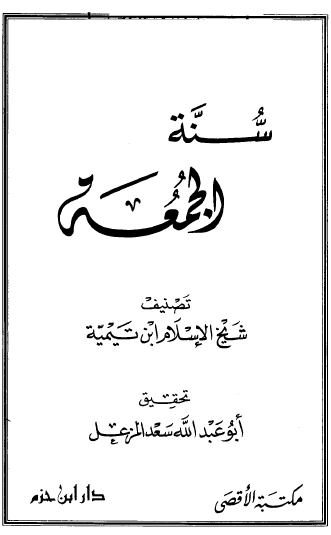 سُنَّة
الجمُعَة
تَصْنيف
شَيْخ الإِسْلَام ابْن تَيْمِيَّة
تحقِيق
أبُو عَبْد اللَّه سَعْد المزعِل
مكتبَة الأقصَى دار ابن حزم